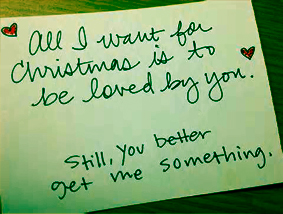 All I want for
Christmas is to
be loved by you.
Still, you better
get me something.